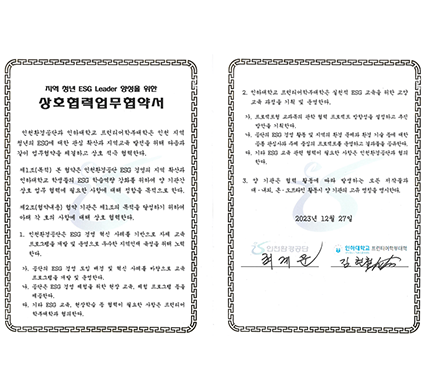 지역 청년 ESG Leader 양성을 위한
상호협력업무협약서
인천환경공단과 인하대학교 프런티어학부대학은 인천 지역
청년의 ESG에 대한 관심 확산과 지역교육 발전을 위해 다음과
같이 업무협약을 체결하고 상호 적극 협력한다.
제1조(목적) 본 협약은 인천환경공단 ESG 경영의 지역 확산과
인하대학교 학생들의 ESG 학습역량 강화를 위하여 양 기관간
상호 업무 협력에 필요한 사항에 대해 정함을 목적으로 한다.
제2조(협약내용) 협약 기관은 제1조의 목적을 달성하기 위하여
아래 각 호의 사항에 대해 상호 협력한다.
1. 인천환경공단은 ESG 경영 혁신 사례를 기반으로 자체 교육
프로그램을 개발 및 운영으로 우수한 지역인재 육성을 위해 노력
한다.
가. 공단의 ESG 경영 도입 배경 및 혁신 사례를 바탕으로 교육
프로그램을 개발 및 운영한다.
나. 공단은 ESG 경영 체험을 위한 현장 교육, 체험 프로그램 등을
제공한다.
다. 기타 ESG 교육, 현장학습 중 협력이 필요한 사항은 프런티어
학부대학과 협의한다.
2. 인하대학교 프런티어학부대학은 실천적 ESG 교육을 위한 교양
교육 과정을 기획 및 운영한다.
가. 프로젝트형 교과목의 관학 협력 프로젝트 방향성을 설정하고 추진
방안을 기획한다.
나. 공단의 ESG 경영 활동 및 지역의 환경 문제와 환경 기술 등에 대한
공통 관심사의 주제 중심의 프로젝트로 운영하고 결과물을 공유한다.
다. 기타 ESG 교육 관련 협력이 필요한 사항은 인천환경공단과 협의
한다.
3. 양 기관은 협력 활동에 따라 발생하는 모든 저작물과
대·내외, 온·오프라인 활동시 양 기관의 교육 성과를 명시한다.
2023년 12월 27일
인천환경공단
인하대학교 프런티어학부대학
최계운